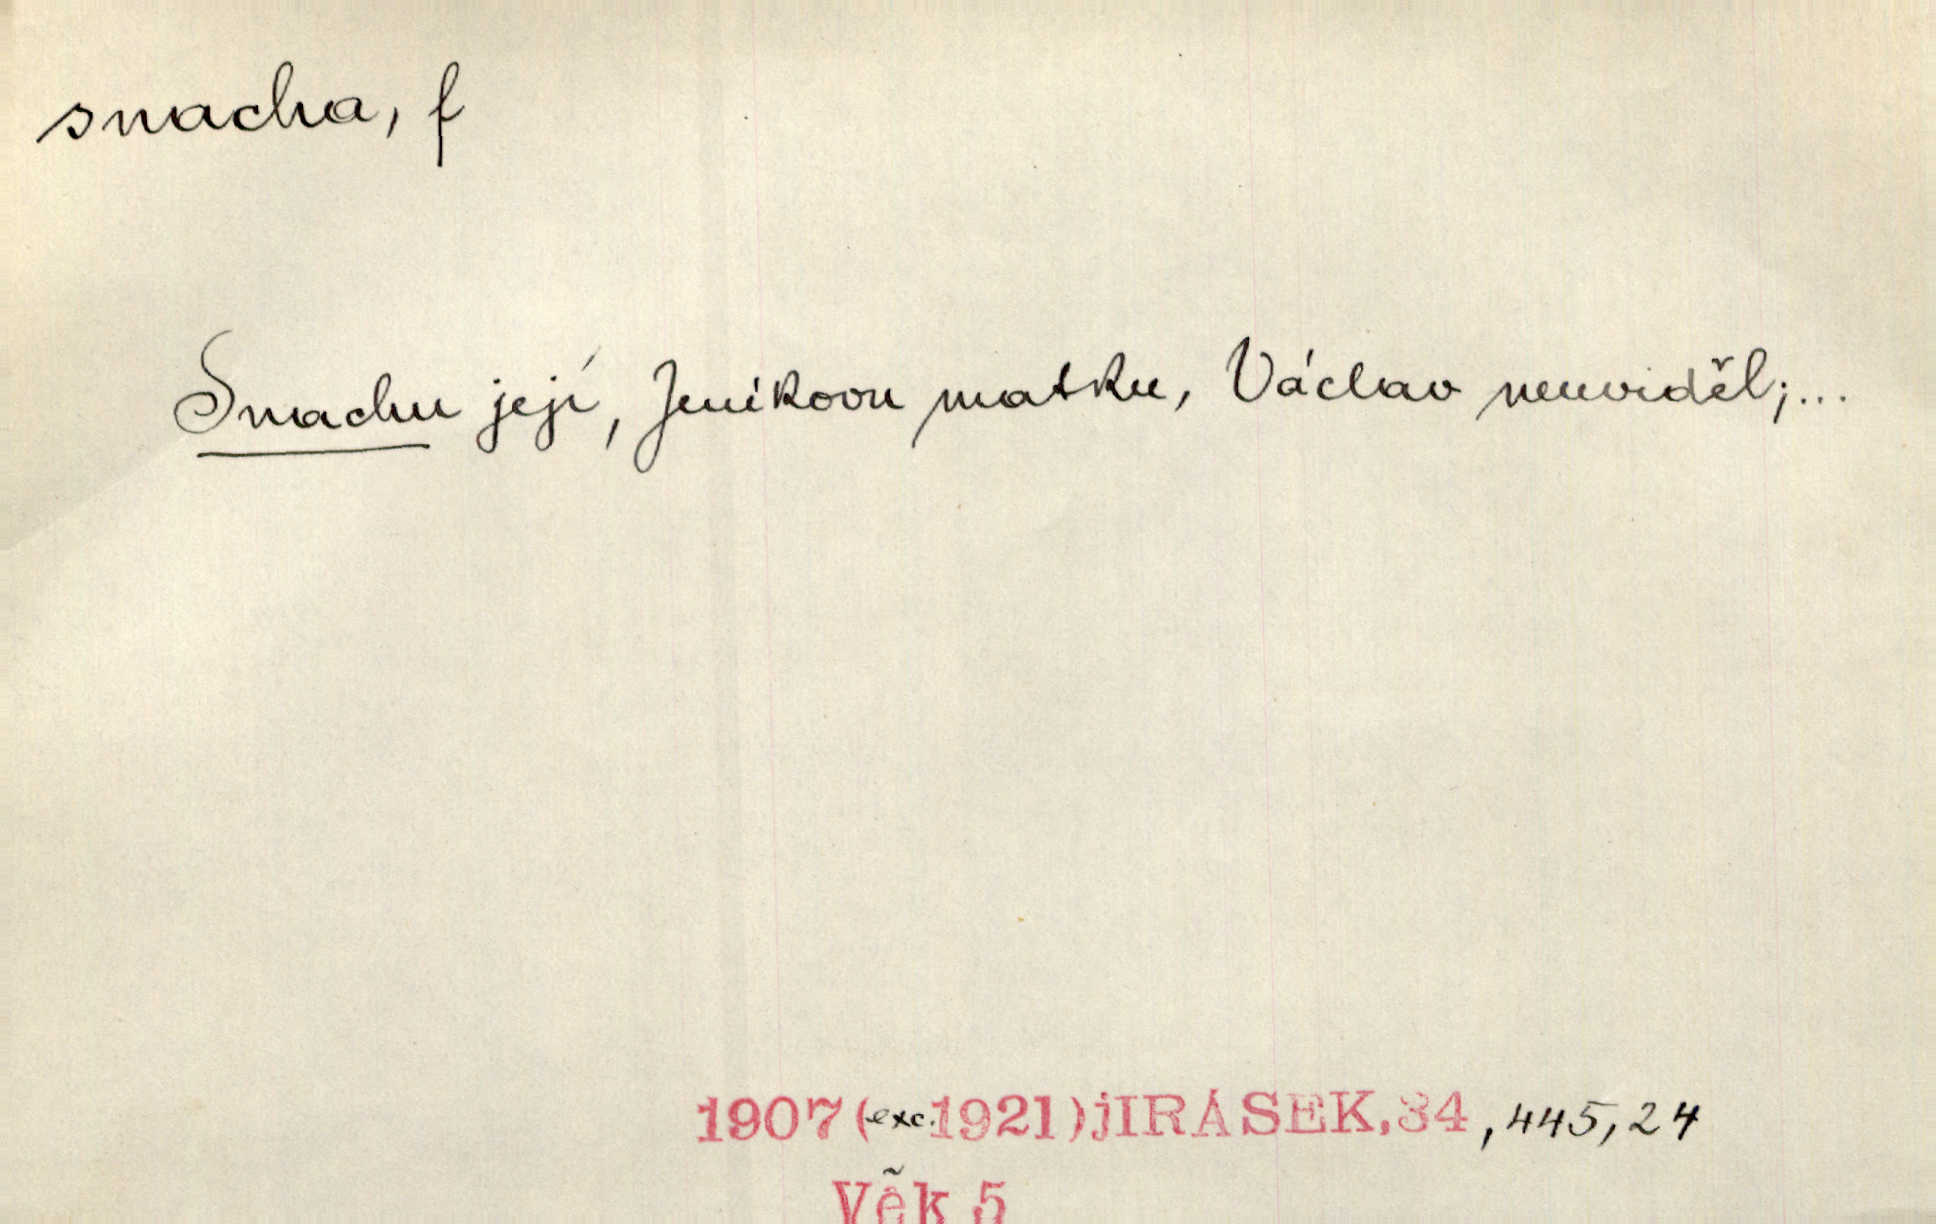 snacha, f
Snachu její, Jeníkovu matku, Václav neuviděl;...
1907(exc.1921)jIRÁSEK,34,445,24
Věk 5